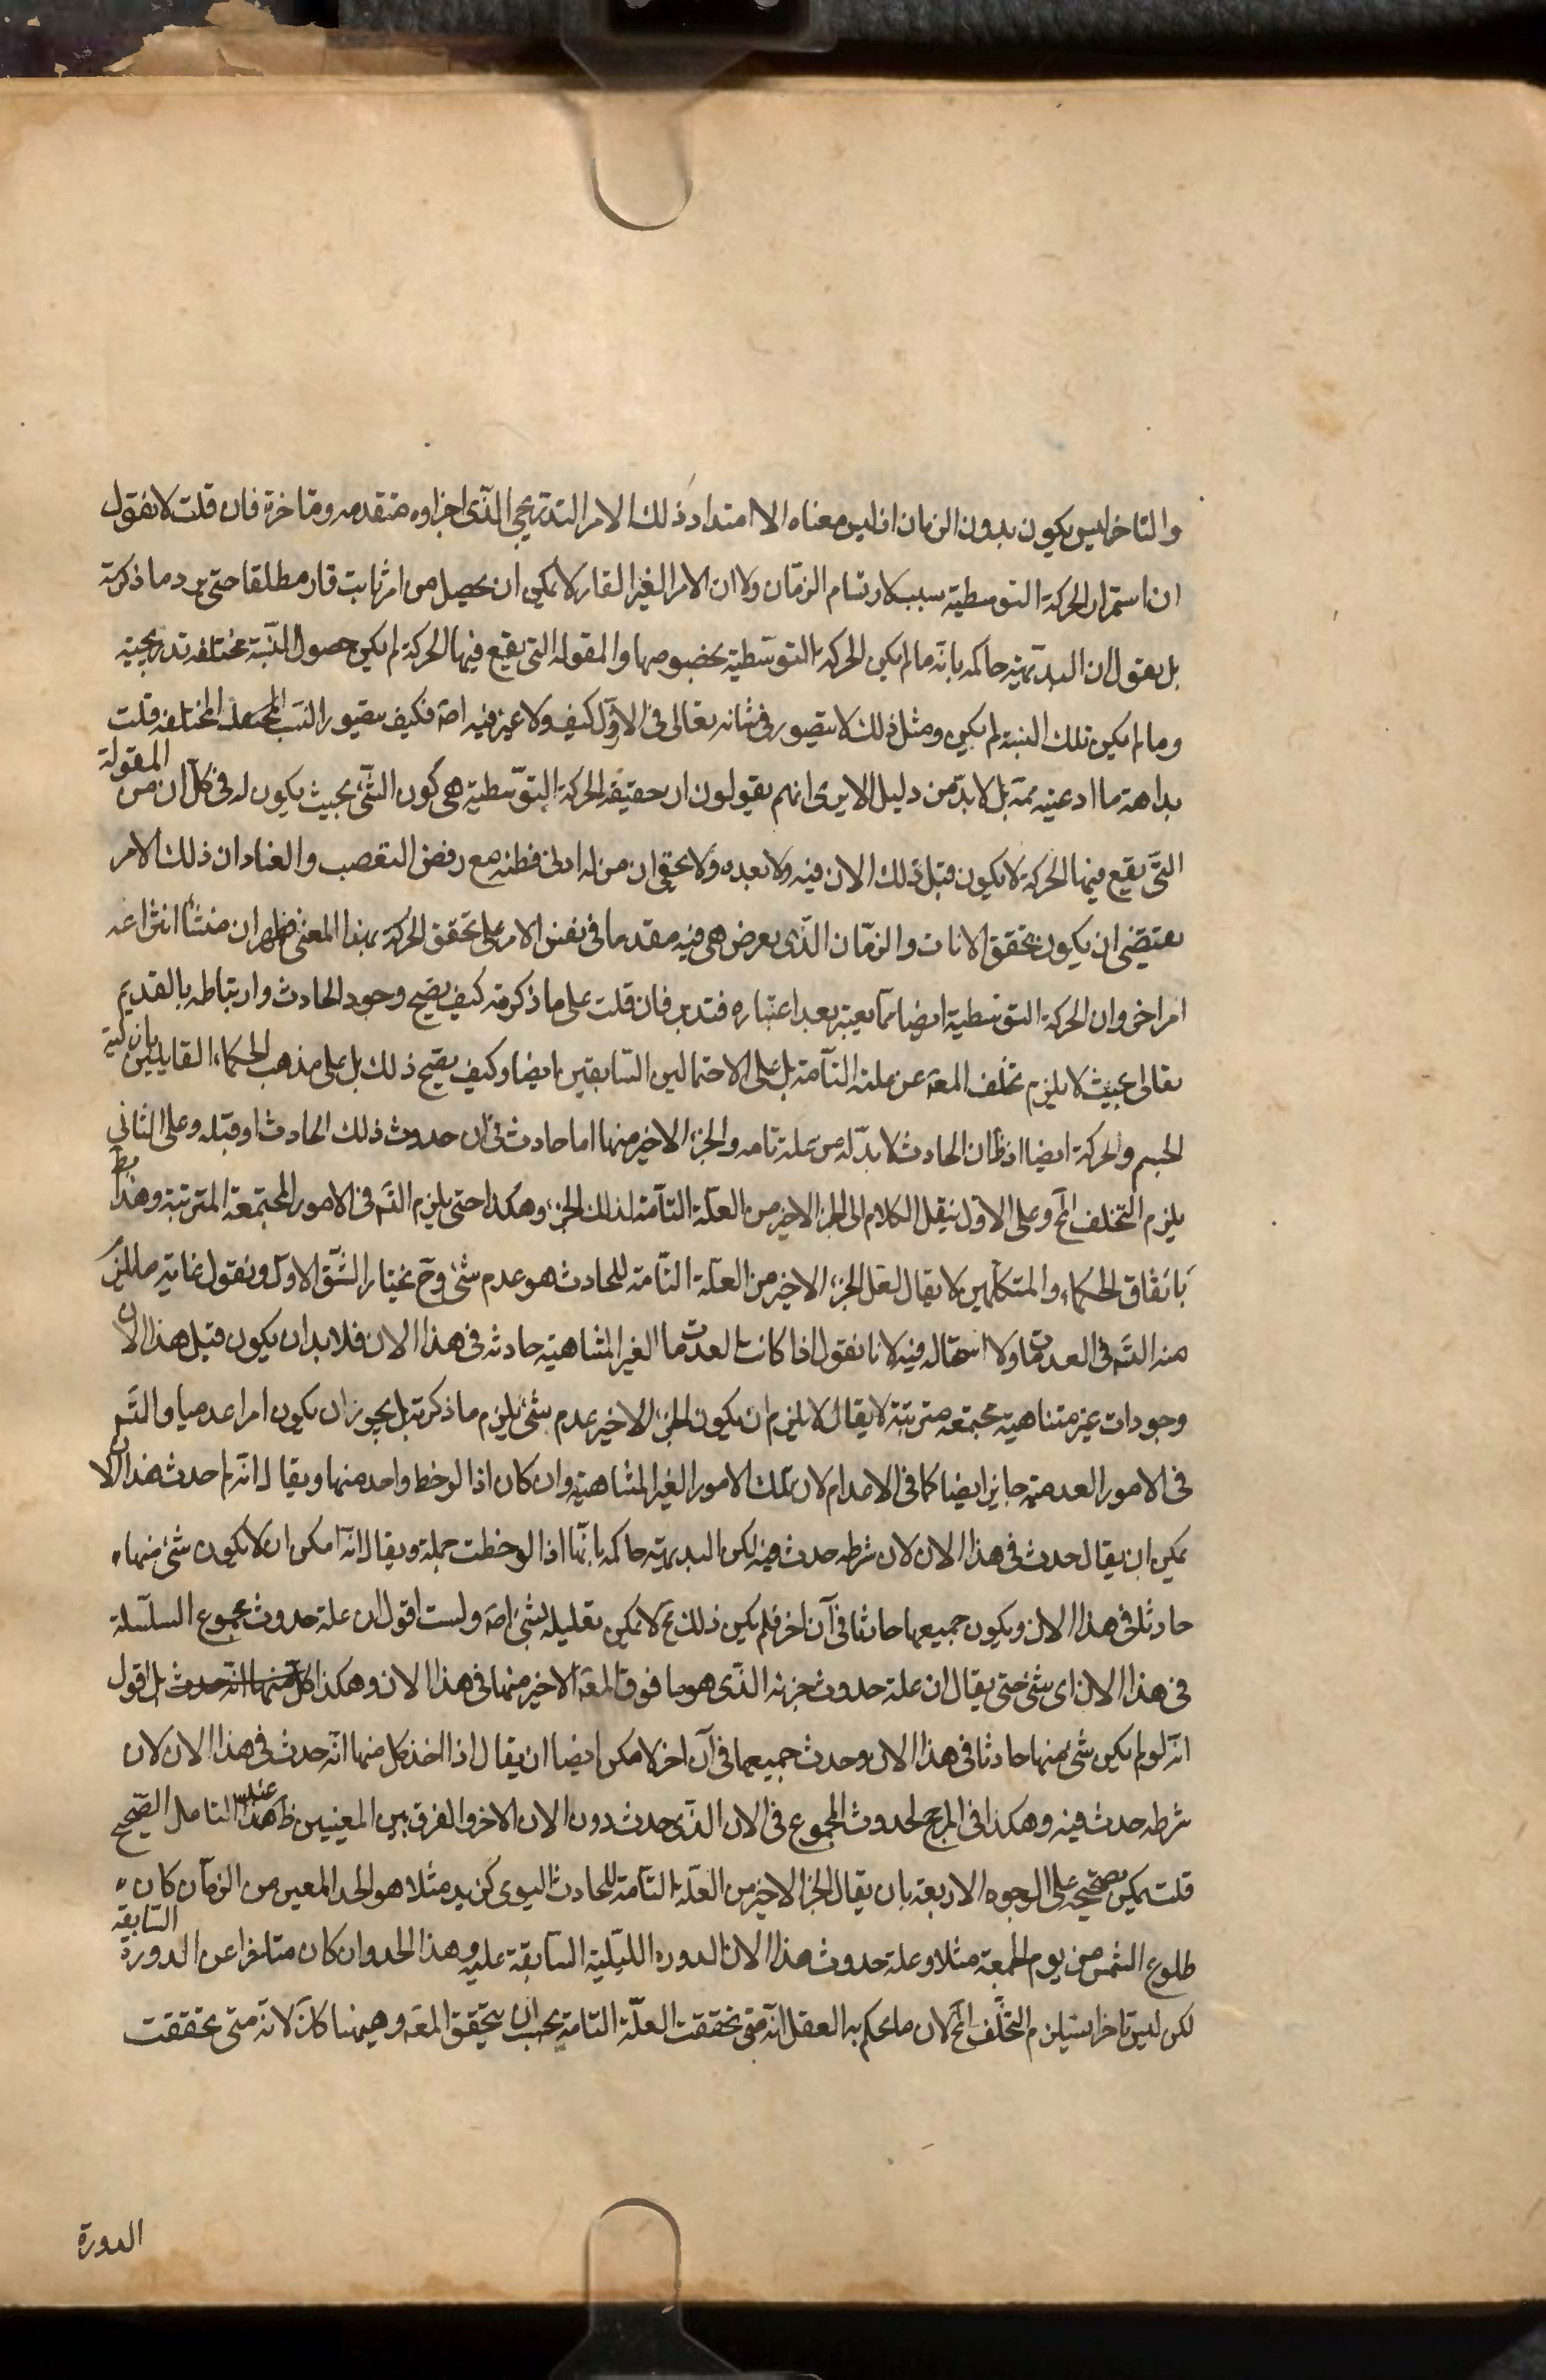 والتاخر ليس يكون بدون الزمان اذ ليس معناه الا امتداد ذلك الامر التدريجي الذى اجزاوه متقدمه ومتاخرة فان قلت لا نقول
ان استمرار الحركة التوسطية سبب لارتسام الزمان ولا ان الامر الغير القار لا يمكن ان يحصل من امر ثابت قار مطلقا حتى يرد ما ذكرته
بل نقول ان البديهية حاكمه بانه ما لم يكن الحركة التوسطية بخصوصها والمقوله التى يقع فيها الحركة لم يكن حصول النسبة مختلفه تدريجية
وما لم يكن تلك النسبة لم يكن ومثل ذلك لا يتصور فى شانه تعالى فى الاول كيف ولا غير فيه اصة فكيف يتصور النسب المختلفه قلت
بداهة ما ادعيته ممة بل لا بد من دليل الا يرى انهم يقولون ان حقيقة الحركة التوسطية هى كون الشئ بحيث يكون له فى كل ان من المقولة
التى يقع فيها الحركة لا يكون قبل ذلك الان فيه ولا بعده ولا يخفى ان من له ادنى فطنه مع رفض التعصب والعناد ان ذلك الامر
يقتضى ان يكون تحقق الانات والزمان الذى يعرض هى فيه مقدما فى نفس الامر على تحقق الحركة بهذا المعنى فظهر ان منشأ انتزاعه
امر اخر وان الحركة التوسطية ايضا مما يعتبر بعد اعتباره فتدبر فان قلت على ما ذكرته كيف يصح وجود الحادث وارتباطه بالقديم
تعالى بحيث لا يلزم تخلف المعة عن علته التامة بل على الاحتمالين السابقين ايضا وكيف يصح ذلك بل على مذهب الحكماء القايلين بازلية
الجسم والحركة ايضا اذ ظ ان الحادث لا بد له من علة تامه والجزء الاخير منها اما حادث فى ان حدوث ذلك الحادث او قبله وعلى الثانى
يلزم التخلف المح وعلى الاول ينقل الكلام الى الجزء الاخير من العلة التامة لذلك الجزء وهكذا حتى يلزم التم فى الامور المجتمعة المترتبة وهذا بط
باتفاق الحكماء والمتكلمين لا يقال لعل الجزء الاخير من العلة التامة للحادث هو عدم شئ وح نختار الشق الاول ونقول غاية ما يلزم
منه التم فى العدمات ولا استحاله فيه لانا نقول اذا كانت العدمات الغير المتناهية حادثه فى هذا الان فلا بد ان يكون قبل هذا الان
وجودات غير متناهية مجتمعه مترتبة لا يقال لا يلزم ان يكون الجزء الاخير عدم شئ يلزم ما ذكرته بل يجوز ان يكون امرا عدميا والتم
فى الامور العدمية جايز ايضا كما فى الاعدام لان تلك الامور الغير المتناهية وان كان اذا لوحظ واحد منها ويقال انه لم حدث هذا الان
يمكن ان يقال حدث فى هذا الان لان شرطه حدث فيه لكن البديهية حاكمه بانها اذا لوحظت جملة ويقال انه امكن ان لا يكون شئ منها
حادثا فى هذا الان ويكون جميعها حادثا فى آن اخر فلم يكن ذلك ح لا يمكن تعليله بشئ اصة ولست اقول ان علة حدوث مجموع السلسلة
فى هذا الان اى شئ حتى يقال ان علة حدوث جزئه الذى هو ما فوق المعة الاخير منها فى هذا الان وهكذا كل منها انه حدث بل اقول
انه لو لم يكن شئ منها حادثا فى هذا الان وحدث جميعها فى آن اخر لامكن ايضا ان يقال اذا اخذ كل منها انه حدث فى هذا الان لان
شرطه حدث فيه وهكذا فما المرجح لحدوث المجموع فى الان الذى حدث دون الان الاخر والفرق بين المعنيين ظ عند التامل الصحيح
قلت يمكن تصحيحه على الوجوه الاربعة بان يقال الجزء الاخير من العلة التامة للحادث اليومى كزيد مثلا هو الحد المعين من الزمان كان
طلوع الشمس من يوم الجمعة مثلا وعلة حدوث هذا الان الدوره الليلية السابقة عليه وهذا الحد وان كان متاخرا عن الدورة السابقة
لكن ليس تاخرا يستلزم التخلف المح لان ما يحكم به العقل انه متى تحققت العلة التامة يجب ان يتحقق المعة وهيهنا كك لانه متى تحققت
الدورة